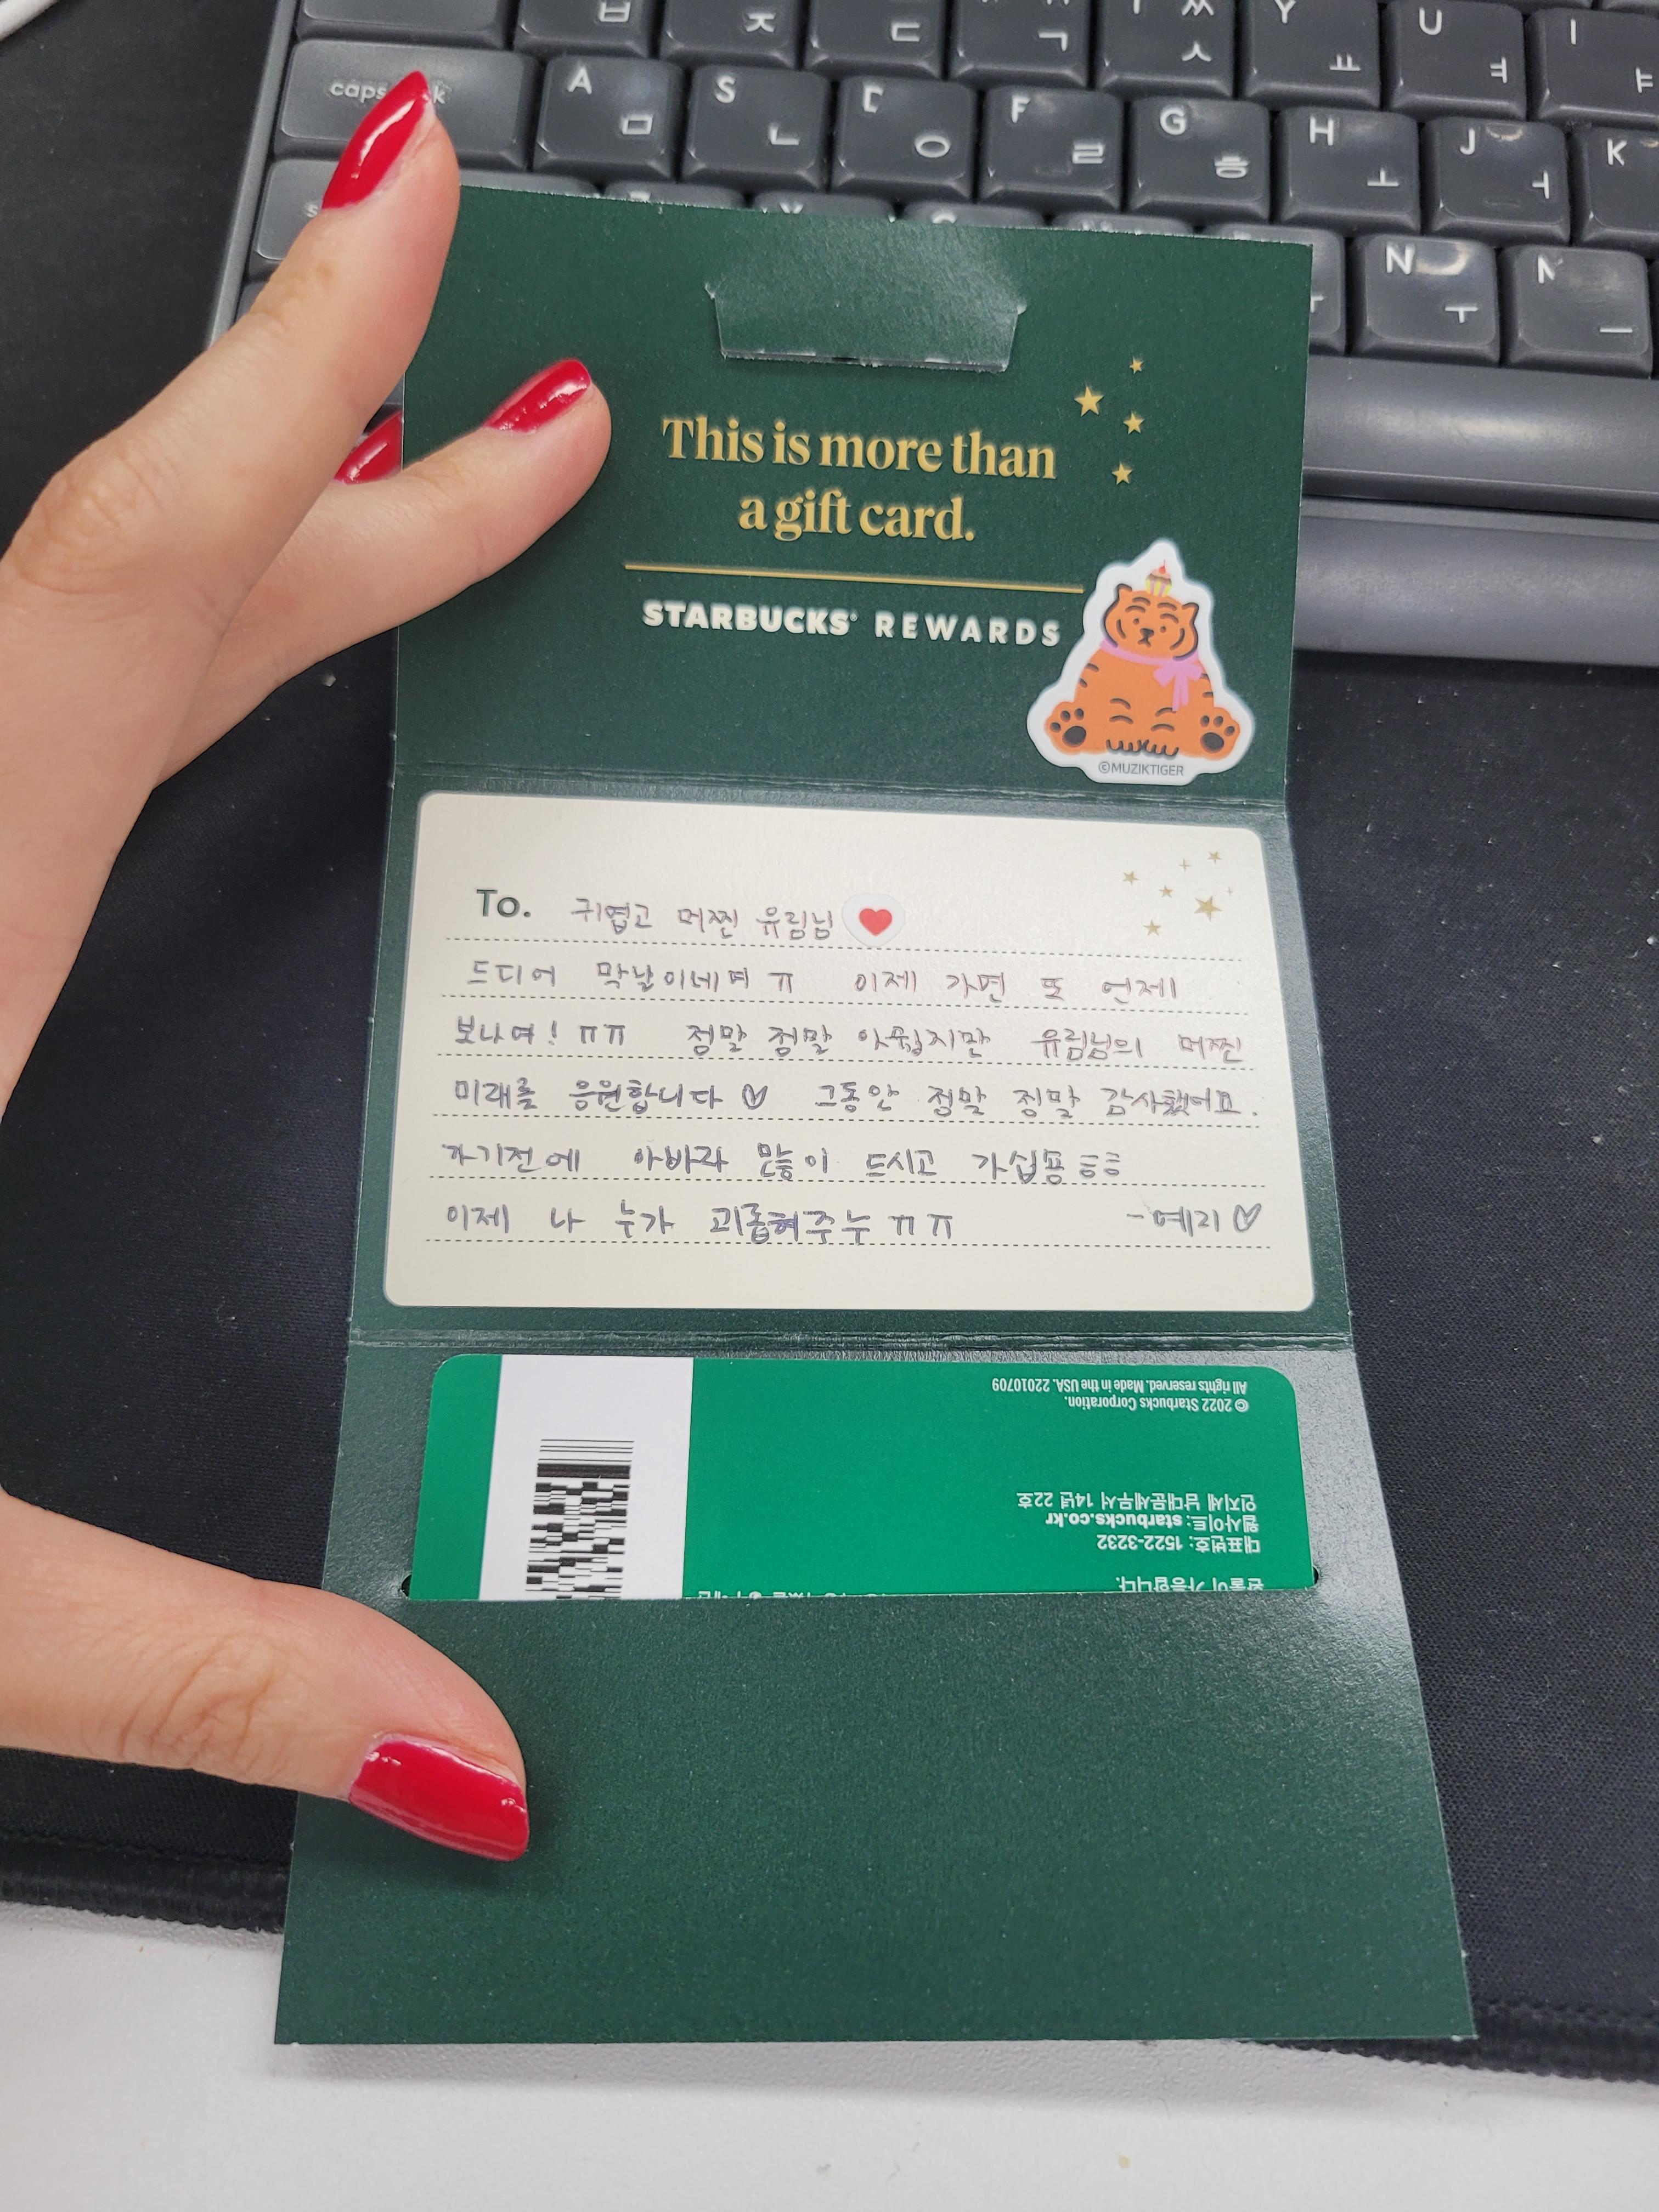 caps
ㅂ
ㅈ
ㄷ
ㄱ
ㅅ
Y ㅛ
U ㅕ
I ㅑ
A ㅁ
S ㄴ
ㅇ
F ㄹ
G ㅎ
H ㅗ
J ㅓ
K
N ㅜ
M ㅡ
This is more than
a gift card.
STARBUCKS® REWARDS
©MUZIKTIGER
To. 귀엽고 머찐 유림님
드디어 막날이네여 ㅠ 이제 가면 또 언제
보나여! ㅠㅠ 정말 정말 아쉽지만 유림님의 머찐
미래를 응원합니다 ♡ 그동안 정말 정말 감사했어요.
가기전에 아바라 많이 드시고 가십용 ㅎㅎ
이제 나 누가 괴롭혀주누 ㅠㅠ -예리 ♡
환불이 가능합니다.
대표번호: 1522-3232
웹사이트: starbucks.co.kr
인지세 남대문세무서 14년 22호
© 2022 Starbucks Corporation.
All rights reserved. Made in the USA. 22010709